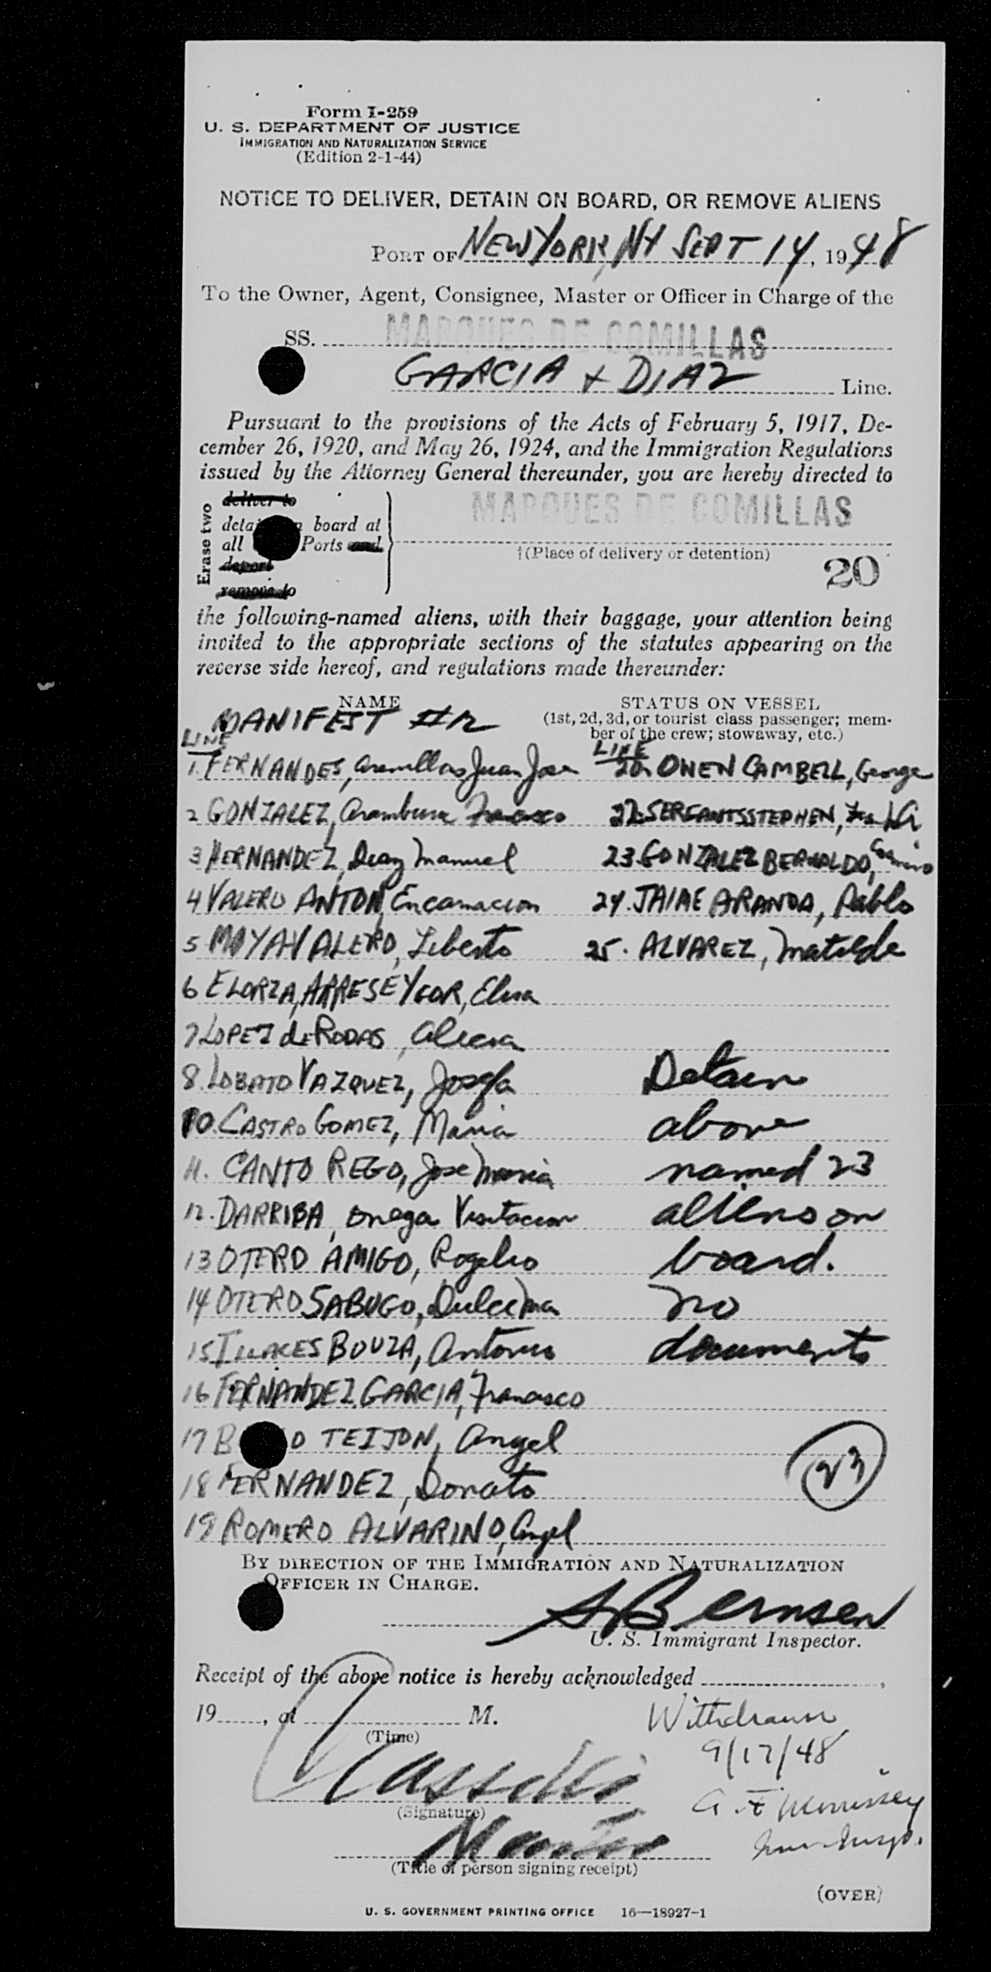 Form I-259
U. S. DEPARTMENT OF JUSTICE
IMMIGRATION AND NATURALIZATION SERVICE
(Edition 2-1-44)
NOTICE TO DELIVER, DETAIN ON BOARD, OR REMOVE ALIENS
PORT OF NEW YORK, NY SEPT 14, 1948
To the Owner, Agent, Consignee, Master or Officer in Charge of the
SS. MARQUES DE COMILLAS
GARCIA + DIAZ Line.
Pursuant to the provisions of the Acts of February 5, 1917, De-
cember 26, 1920, and May 26, 1924, and the Immigration Regulations
issued by the Attorney General thereunder, you are hereby directed to
Erase two
deliver to
board at
all Ports and
deport
remove to
MARQUES DE COMILLAS
†(Place of delivery or detention)
20
the following-named aliens, with their baggage, your attention being
invited to the appropriate sections of the statutes appearing on the
reverse side hereof, and regulations made thereunder:
NAME
STATUS ON VESSEL
(1st, 2d, 3d, or tourist class passenger; mem-
ber of the crew; stowaway, etc.)
MANIFEST #12
LINE
LINE
1. FERNANDES, Juan Jose
OWEN CAMBELL, George
2 GONZALEZ, Aramburu Francisco
22. STEPHEN,
3 HERNANDEZ, Diaz Manuel
23. GONZALEZ BERNALDO,
4 VALERO ANTON, Encarnacion
24. JAIME ARANDA, Pablo
5 MOYA VALERO, Liberto
25. ALVAREZ, Matilde
6 ELORZA, ARRESEYGOR, Elisa
7 LOPEZ de RODAS, Alicia
8. LOBATO VAZQUEZ, Josefa
Detain
10. CASTRO GOMEZ, Maria
above
11. CANTO REGO, Jose Maria
named 23
12. DARRIBA, Onega Visitacion
aliens on
13 OTERO AMIGO, Rogelio
board.
14 OTERO SABUGO, Dulcima
no
15 BOUZA, Antonio
documents
16 FERNANDEZ GARCIA, Francisco
17 TEIJON, Angel
18 FERNANDEZ, Donato
23
19 ROMERO ALVARINO, Angel
BY DIRECTION OF THE IMMIGRATION AND NATURALIZATION
OFFICER IN CHARGE.
S Bernsen
U. S. Immigrant Inspector.
Receipt of the above notice is hereby acknowledged
19 , at M.
(Time)
Withdrawn
9/17/48
(Signature)
Morrissey
(Title of person signing receipt)
(OVER)
U. S. GOVERNMENT PRINTING OFFICE 16—18927-1